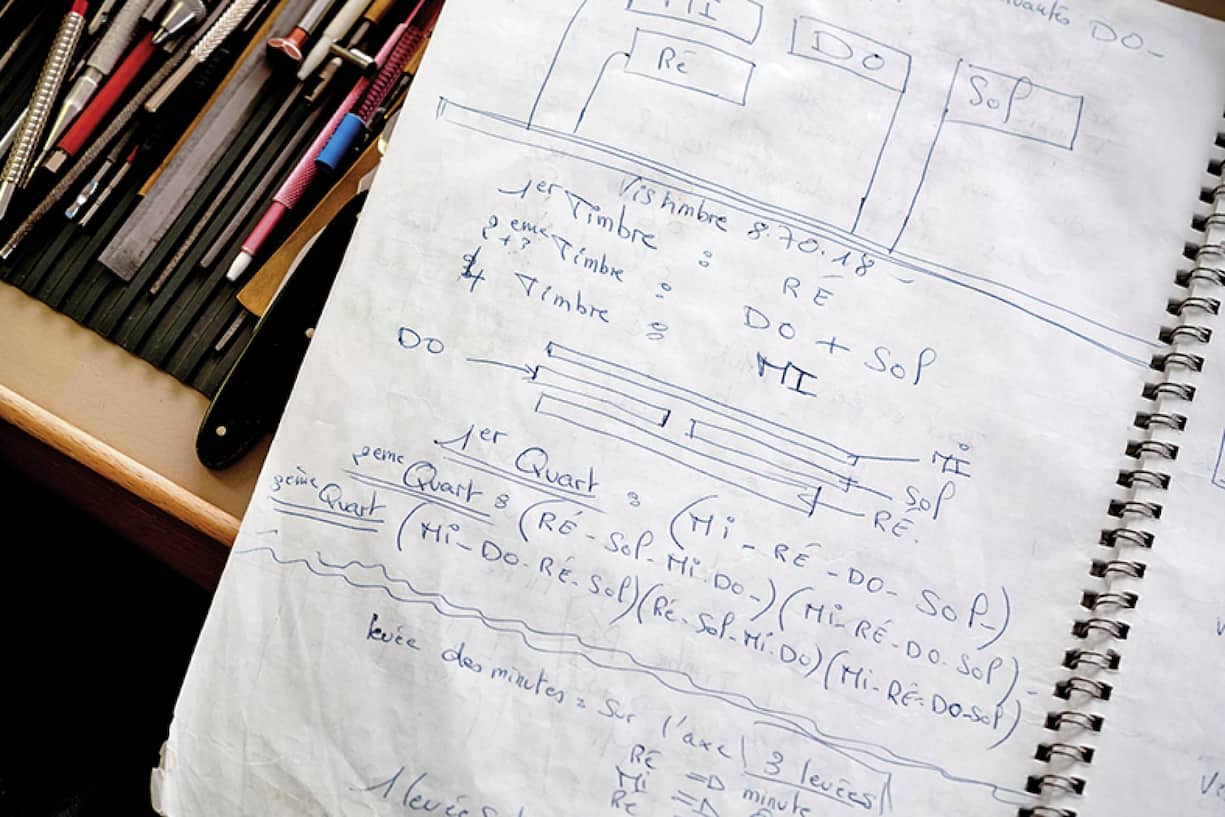 DO-
MI
Ré
DO
Sol
Vis timbre 8.70.18
1er Timbre : RÉ
2eme +3 Timbre : DO + Sol
4 Timbre : MI
DO
Mi
Sol
RÉ.
1er Quart : (Mi - RÉ - DO - Sol-)
2eme Quart : (RÉ - Sol - Mi - DO-) (Mi - RÉ - DO - Sol) -
3eme Quart (Mi - DO - RÉ - Sol) (Ré - Sol - Mi - DO) (Mi - RÉ - DO - Sol)
levée des minutes = Sur l'axe 3 levées
Ré => minute
Mi =>
Ré =>
1 levée